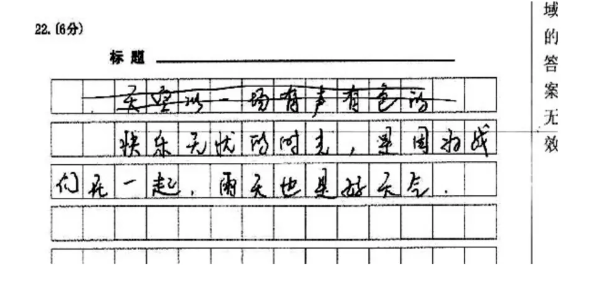 22.(6分)
标 题
天空以一场有声有色的
快乐无忧的时光,是因为我
们在一起,雨天也是好天气.
域的答案无效